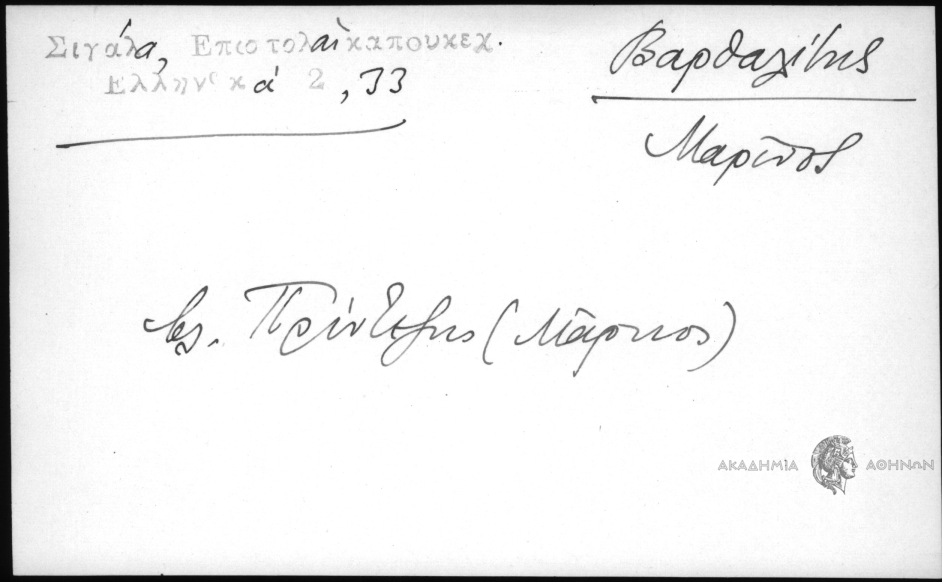 Σιγάλα, Επιστολαὶ καπουκεκ.
Ελληνικά 2, 33
Βαρθαλίτης
Μαρῖνος
βλ. Πρίντεζης (Μᾶρκος)
ΑΚΑΔΗΜΙΑ ΑΘΗΝΩΝ